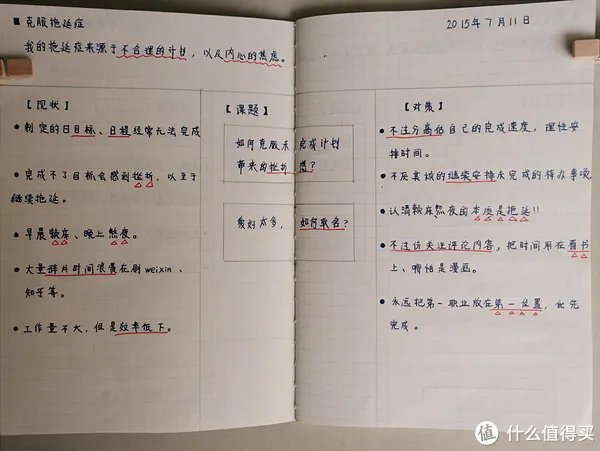 ■ 克服拖延症
2015年7月11日
我的拖延症来源于不合理的计划，以及内心的焦虑。
【现状】
• 制定的日目标、日程经常无法完成
• 完成不了目标会感到挫折、以至于
继续拖延。
• 早晨赖床、晚上熬夜。
• 大量碎片时间浪费在刷weixin、
知乎等。
• 工作量不大，但是效率低下。
【课题】
如何克服未完成计划
带来的挫折感？
爱好太多，如何取舍？
【对策】
• 不过分高估自己的完成速度，理性安
排时间。
• 不灰其馁的继续安排未完成的待办事项
• 认清赖床熬夜的本质是拖延!!
• 不过份关注评论内容，把时间用在看书
上、哪怕是漫画。
• 永远把第一职业放在第一位置，优先
完成。
值 什么值得买